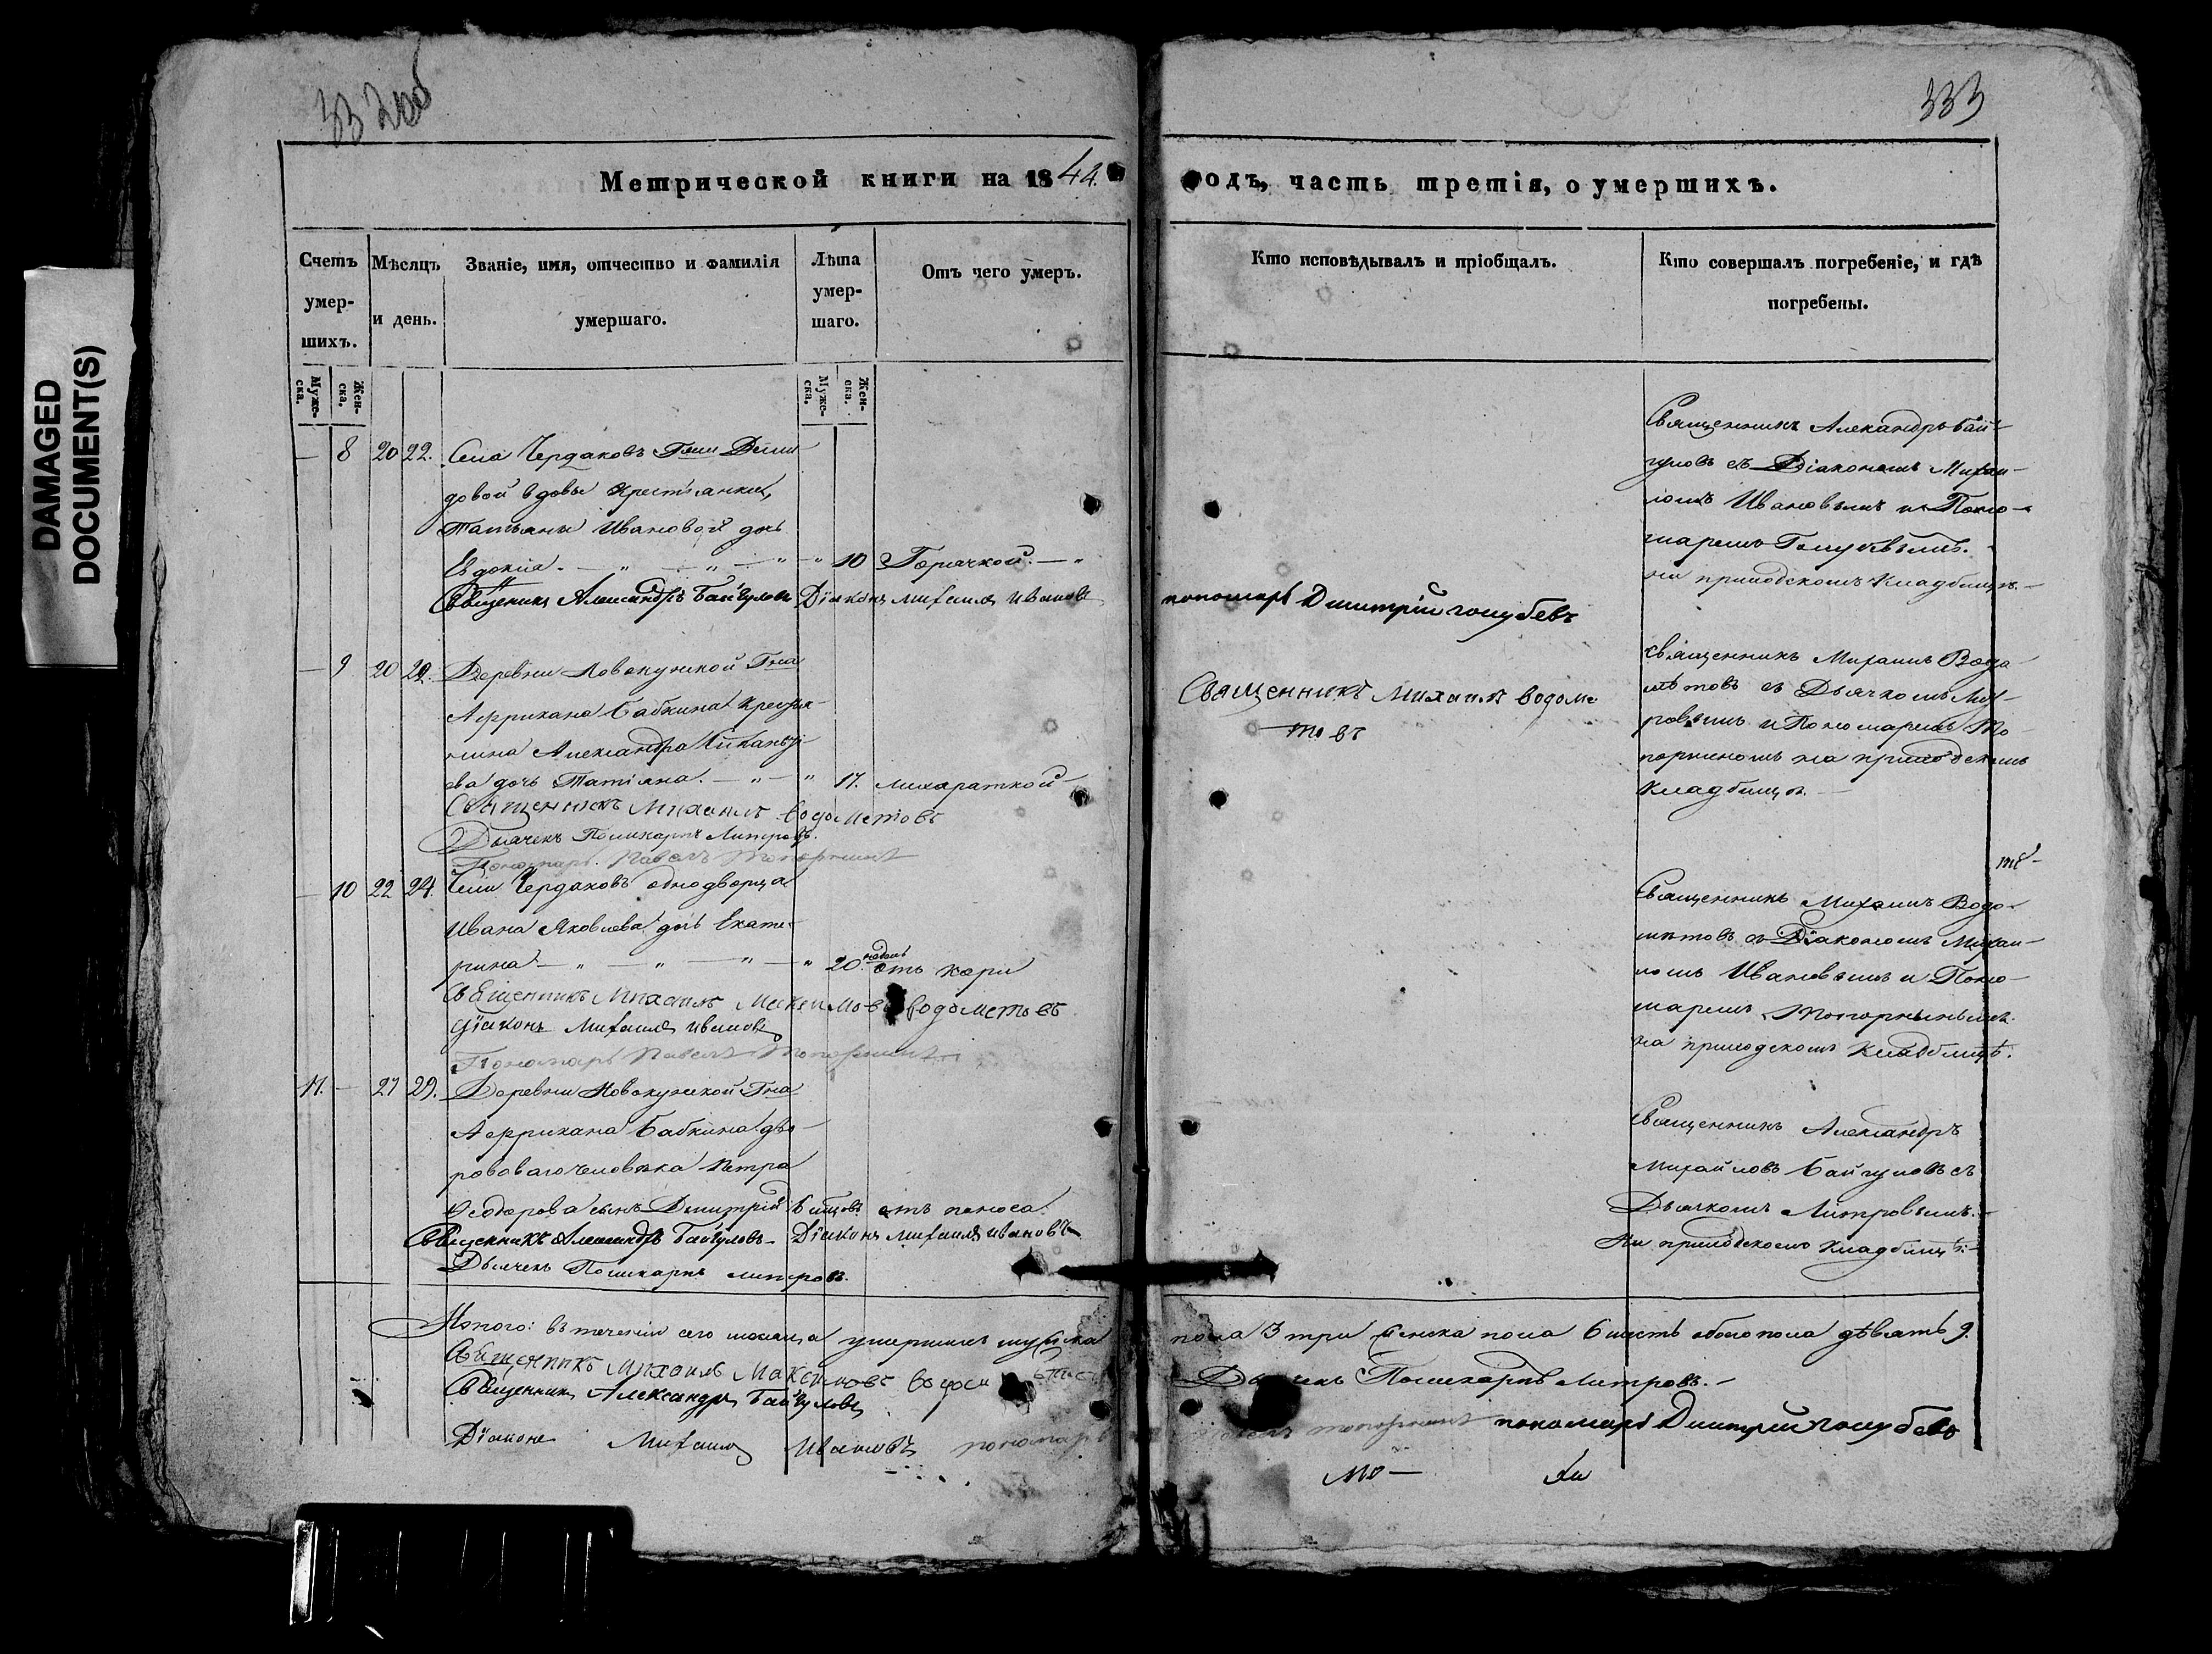 332об
333
DAMAGED
DOCUMENT(S)
Метрической книги на 1844.
годъ, часть третія, о умершихъ.
Счетъ умер-шихъ.
Мѣсяцъ и день.
Званіе, имя, отчество и фамилія умершаго.
Лѣта умер-шаго.
Отъ чего умеръ.
Кто исповѣдывалъ и пріобщалъ.
Кто совершалъ погребеніе, и гдѣ погребены.
Муже-ска.
Жен-ска.
Муже-ска.
Жен-ска.
— 8 20 22. Села Чердаковъ Гжи Деми
довой вдовы крестьянки,
Татьяны Ивановой дочь
Евдокія. — " — " — " — " 10 Горячкой. — "
Священникъ Александръ Байгуловъ Діаконъ Михаилъ Ивановъ
пономарь Дмитрій Голубевъ
Священникъ Александръ Бай-
гуловъ съ Діакономъ Михаи-
ломъ Ивановымъ и Поно-
маремъ Голубевымъ.
на приходскомъ кладбищѣ. —
— 9 20 22. Деревни Новокужской Гна
Африкана Бабкина крестья-
нина Александра
ева дочь Татіана. — " — " 17. лихораткой
Священникъ Михаилъ Водометовъ
Дьячекъ Поликарпъ Литровъ.
Пономарь Павелъ Топорнинъ
Священникъ Михаилъ Водоме
товъ
Священникъ Михаилъ Водо
мѣтовъ съ Дьячкомъ Лит-
ровымъ и Пономаремъ То
порниномъ на приходскомъ
кладбищѣ. —
— 10 22 24. Села Чердаковъ однодворца
Ивана Яковлева дочь Екате-
рина — " — " — " — " 20 недѣль отъ кори
Священникъ Михаилъ Максимовъ Водометовъ
Діаконъ Михаилъ Ивановъ
Пономарь Павелъ Топорнинъ
Священникъ Михаилъ Водо-
мѣтовъ съ Діакономъ Михаи-
ломъ Ивановымъ и Поно-
маремъ Топорнинымъ.
на приходскомъ кладбищѣ.
11. — 27 29. Деревни Новокужской Гна
Африкана Бабкина дво-
роваго человѣка Петра
Ѳеодорова сынъ Дмитрій 6 отъ поноса.
Священникъ Александръ Байгуловъ Діаконъ Михаилъ Ивановъ
Дьячекъ Поликарпъ Литровъ.
Священникъ Александръ
Михайловъ Байгуловъ съ
Дьячкомъ Литровымъ. —
На приходскомъ кладбищѣ. —
Итого: въ теченіи сего мѣсяца умершихъ мужска
пола 3 три женска пола 6 шесть обоего пола девять 9.
Священникъ Михаилъ Максимовъ
Дьячекъ Поликарпъ Литровъ. —
Священникъ Александръ Байгуловъ
Діаконъ Михаилъ Ивановъ пономарь
Топорнинъ пономарь Дмитрій Голубевъ